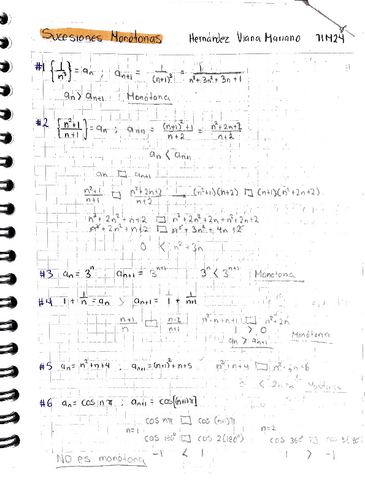 Sucesiones Monótonas Hernández Viana Mariano 7IM24
#1 {1/n³} = aₙ ; aₙ₊₁ = 1/(n+1)³ = 1/(n³+3n²+3n+1)
aₙ > aₙ₊₁ Monótona
#2 {(n²+1)/(n+1)} = aₙ ; aₙₙ = ((n+1)²+1)/(n+2) = (n²+2n+2)/(n+2)
aₙ < aₙₙ
aₙ □ aₙ₊₁
(n²+1)/(n+1) □ (n²+2n+2)/(n+2) → (n²+1)(n+2) □ (n+1)(n²+2n+2)
n³+2n²+n+2 □ n³+2n²+2n+n²+2n+2
n³+2n²+n+2 □ n³+3n²+4n+2
0 < n²+3n
#3 aₙ = 3ⁿ aₙ₊₁ = 3ⁿ⁺¹ 3ⁿ < 3ⁿ⁺¹ Monótona
#4 1 + 1/n = aₙ > aₙ₊₁ = 1 + 1/(n+1)
(n+1)/n □ (n+2)/(n+1) n²+n+n+1 □ n²+2n
1 > 0 Monótona
aₙ > aₙ₊₁
#5 aₙ = n²+n+4 ; aₙ₊₁ = (n+1)²+n+5 n²+n+4 □
0 < Monótona
#6 aₙ = cos nπ ; aₙ₊₁ = cos[(n+1)π]
cos nπ □ cos (n+1)π
n=1 n=2
cos 180° □ cos 2(180°) cos 360° □
-1 < 1 1 > -1
NO es monótona